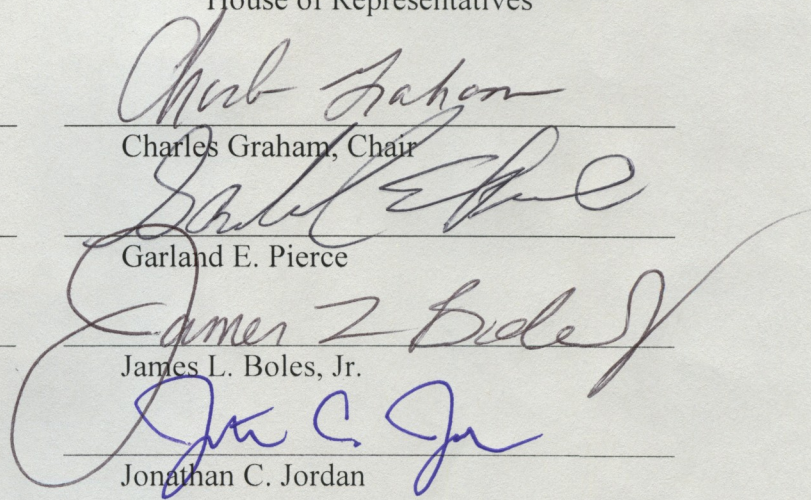 House of Representatives
Charles Graham
Charles Graham, Chair
Garland E. Pierce
Garland E. Pierce
James L Boles Jr
James L. Boles, Jr.
Jonathan C. Jordan